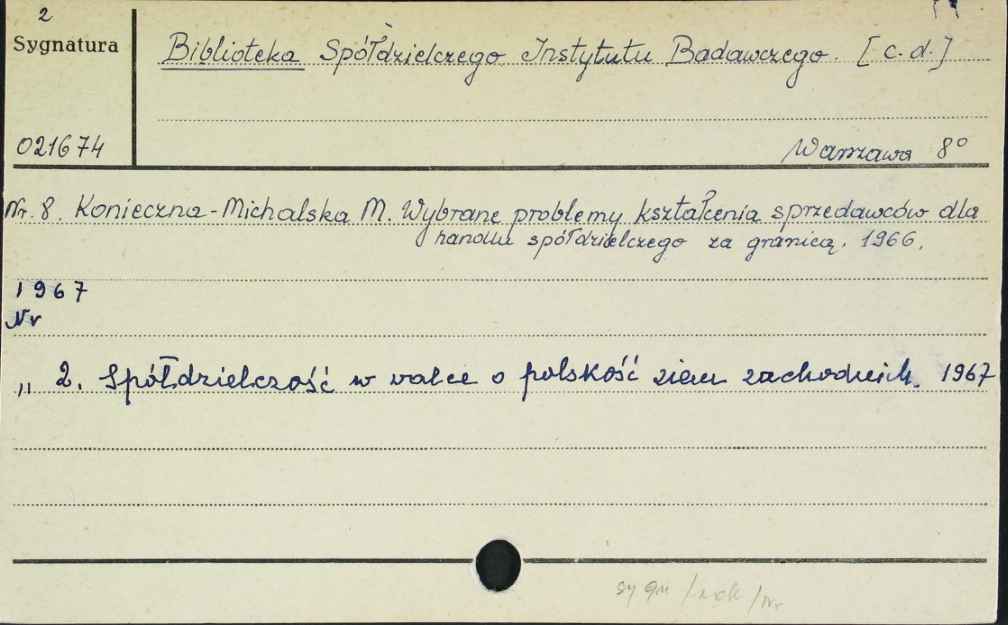 2
Sygnatura
Biblioteka Spółdzielczego Instytutu Badawczego. [c.d.]
021674
Warszawa 8°
Nr. 8. Konieczna-Michalska M. Wybrane problemy kształcenia sprzedawców dla
handlu spółdzielczego za granicą. 1966.
1967
Nr
„ 2. Spółdzielczość w walce o polskość ziem zachodnich. 1967
sygn /rok /nr